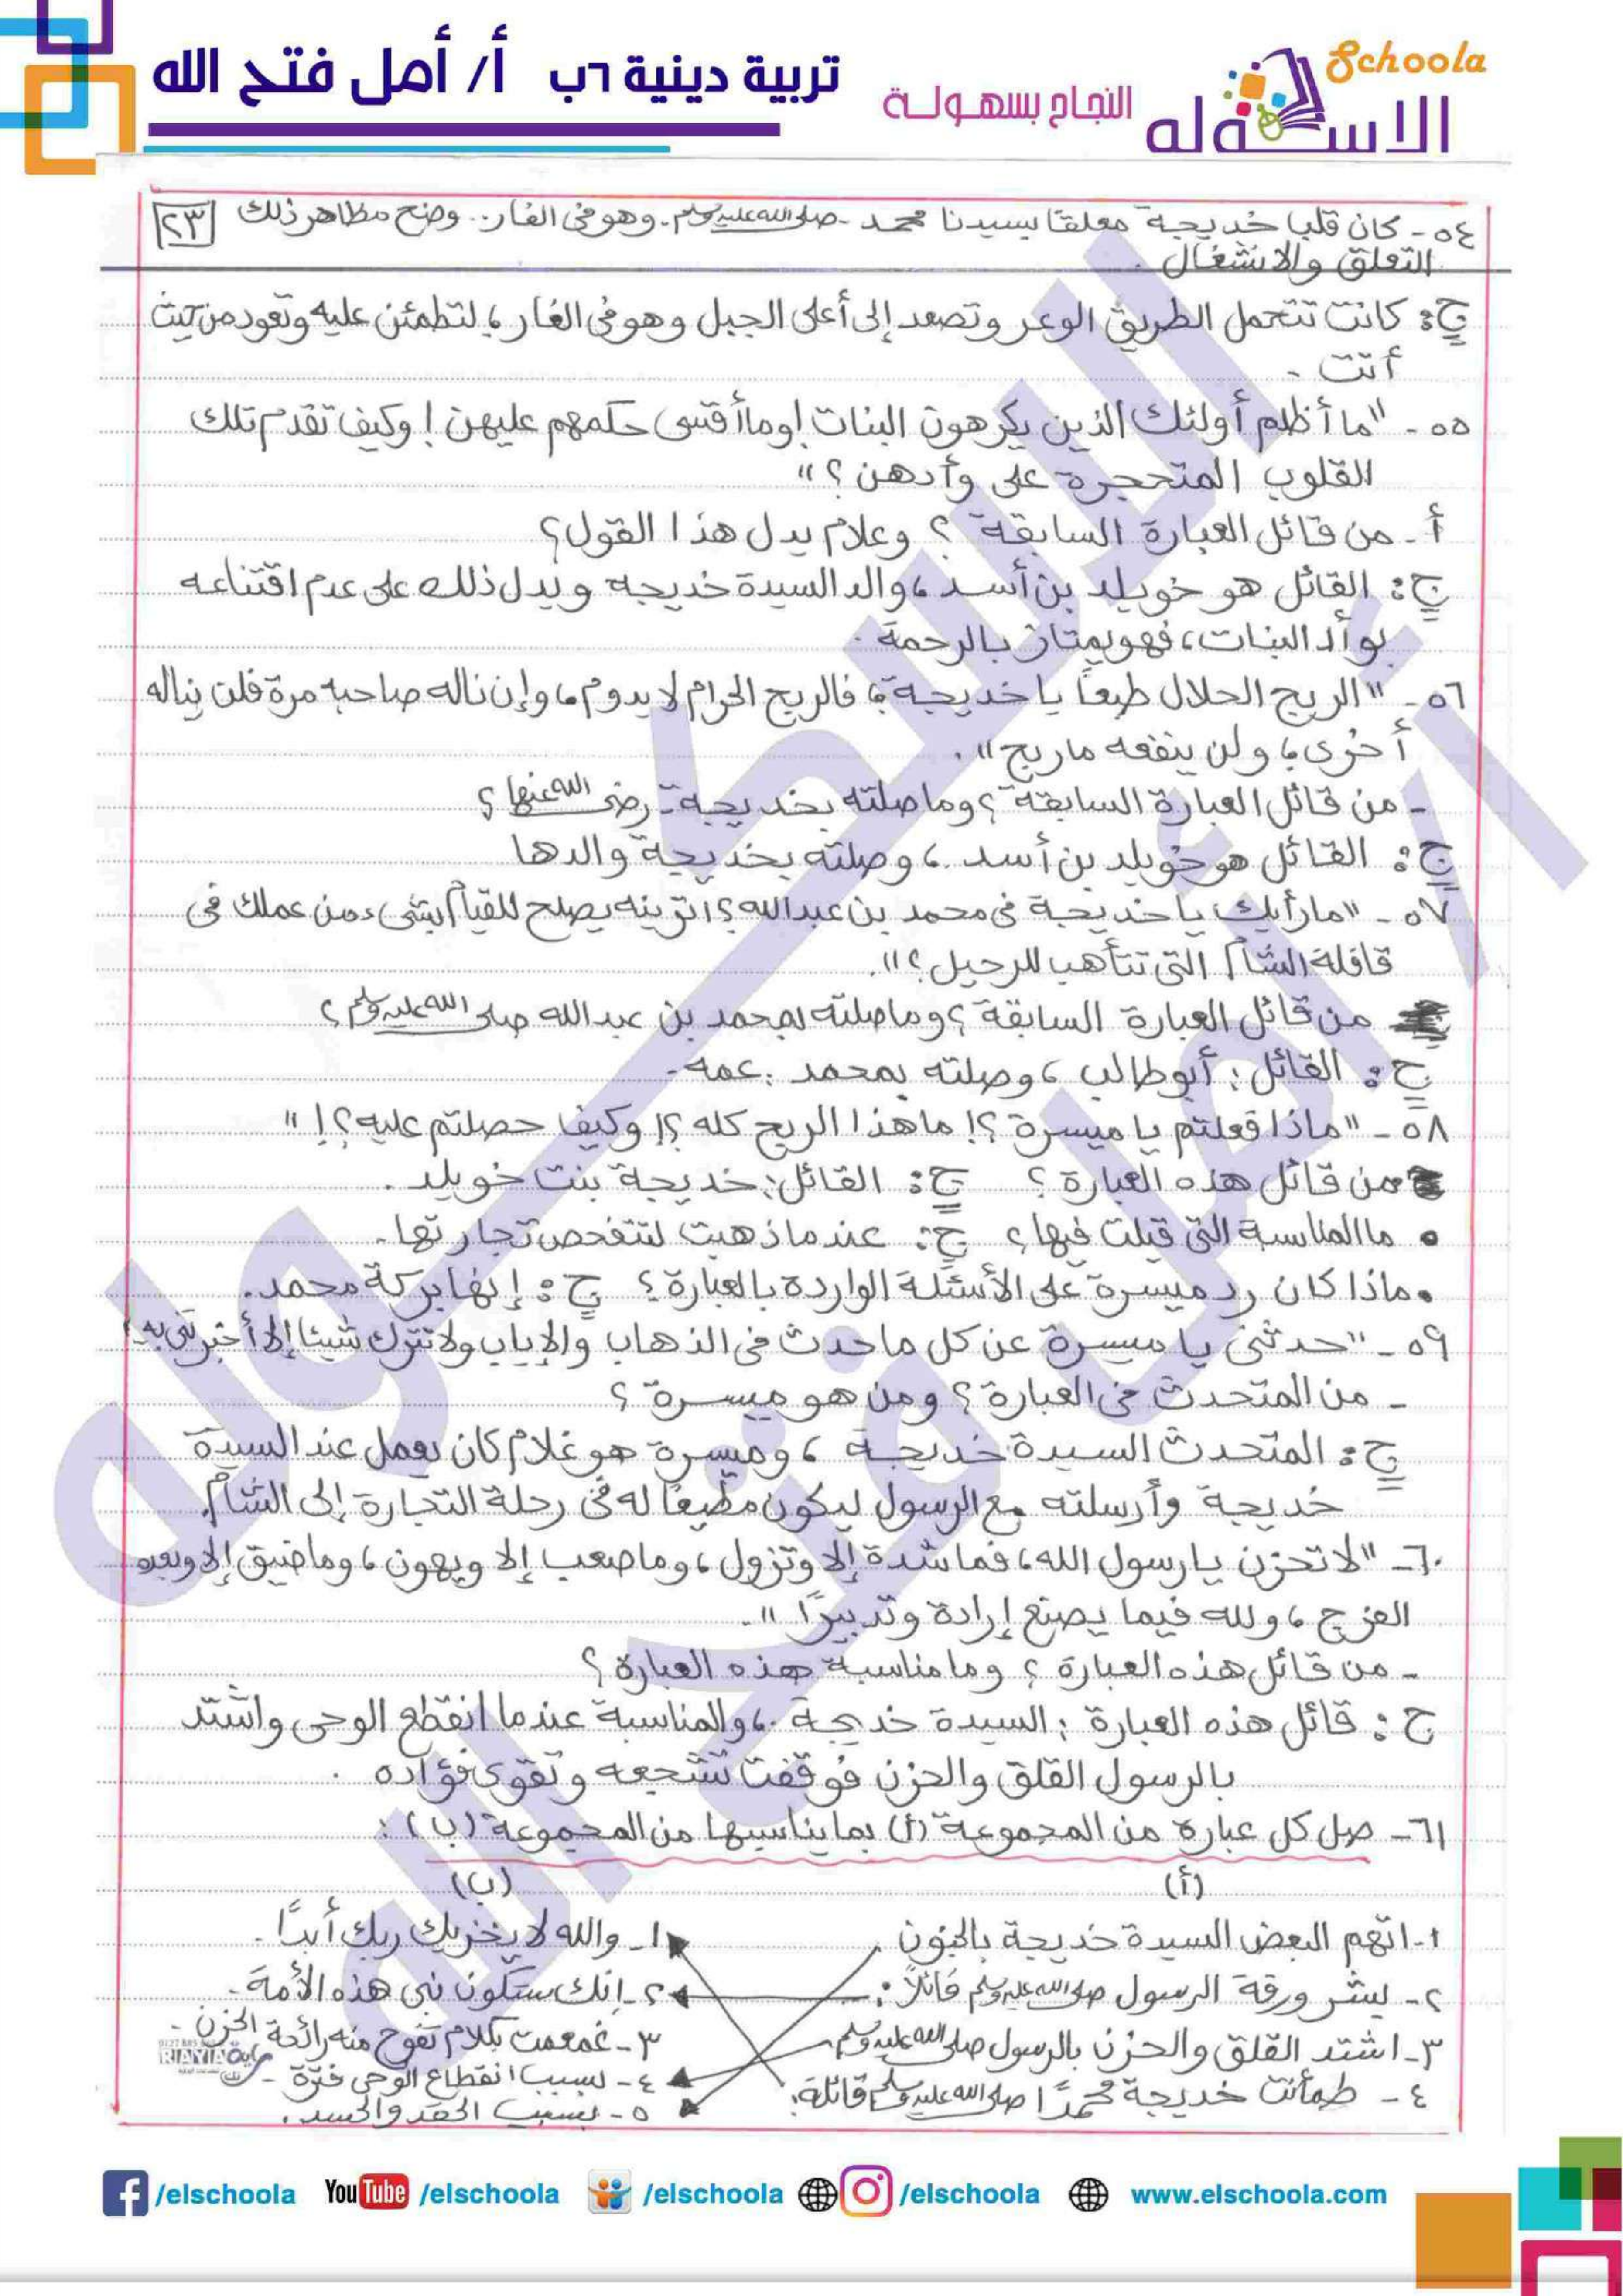 Schoola
الاسكوله
النجاح بسهولة
تربية دينية ٦ب أ/ أمل فتح الله
٢٣
٥٤- كان قلب خديجة معلقًا بسيدنا محمد - صلى الله عليه وسلم - وهو فى الغار .. وضح مظاهر ذلك
التعلق والانشغال .
ج: كانت تتحمل الطريق الوعر وتصعد إلى أعلى الجبل وهو فى الغار ، لتطمئن عليه وتعود من حيث
أتت .
٥٥- "ما أظلم أولئك الذين يكرهون البنات! وما أقسى حكمهم عليهن! وكيف تقدم تلك
القلوب المتحجرة على وأدهن؟"
أ- من قائل العبارة السابقة ؟ وعلام يدل هذا القول؟
ج: القائل هو خويلد بن أسد ، والد السيدة خديجة ويدل ذلك على عدم اقتناعه
بوأد البنات، فهو يمتاز بالرحمة .
٥٦- "الربح الحلال طبعًا يا خديجة ؛ فالربح الحرام لا يدوم ، وإن ناله صاحبه مرة فلن يناله
أخرى ، ولن ينفعه ما ربح" .
- من قائل العبارة السابقة ؟ وما صلته بخديجة - رضى الله عنها ؟
ج: القائل هو خويلد بن أسد ، وصلته بخديجة والدها
٥٧- "ما رأيك يا خديجة فى محمد بن عبدالله ؟ أترينه يصلح للقيام بشىء من عملك فى
قافلة الشام التى تتأهب للرحيل ؟" .
من قائل العبارة السابقة ؟ وما صلته بمحمد بن عبد الله صلى الله عليه وسلم ؟
ج: القائل: أبو طالب ، وصلته بمحمد : عمه .
٥٨- "ماذا فعلتم يا ميسرة ؟! ما هذا الربح كله ؟! وكيف حصلتم عليه ؟! "
من قائل هذه العبارة ؟ ج: القائل: خديجة بنت خويلد .
• ما المناسبة التى قيلت فيها ؟ ج: عندما ذهبت لتتفحص تجارتها .
• ماذا كان رد ميسرة على الأسئلة الواردة بالعبارة ؟ ج: إنها بركة محمد .
٥٩- "حدثنى يا ميسرة عن كل ما حدث فى الذهاب والإياب ولا تترك شيئا إلا أخبرتنى به"
- من المتحدث فى العبارة ؟ ومن هو ميسرة ؟
ج: المتحدث السيدة خديجة ، وميسرة هو غلام كان يعمل عند السيدة
خديجة وأرسلته مع الرسول ليكون مطيعًا له فى رحلة التجارة إلى الشام .
٦٠- "لا تحزن يا رسول الله ، فما شدة إلا وتزول ، وما صعب إلا ويهون ، وما ضيق إلا وبعده
الفرج ، ولله فيما يصنع إرادة وتدبيرًا" .
- من قائل هذه العبارة ؟ وما مناسبة هذه العبارة ؟
ج: قائل هذه العبارة : السيدة خديجة ، والمناسبة عندما انقطع الوحى واشتد
بالرسول القلق والحزن فوقفت تشجعه وتقوى فؤاده .
٦١- صل كل عبارة من المجموعة (أ) بما يناسبها من المجموعة (ب) :
(أ) (ب)
١- اتهم البعض السيدة خديجة بالجنون . ١- والله لا يخزيك ربك أبدًا .
٢- بشر ورقة الرسول صلى الله عليه وسلم قائلاً : ٢- إنك ستكون نبى هذه الأمة .
٣- اشتد القلق والحزن بالرسول صلى الله عليه وسلم ٣- غمغمت بكلام تفوح منه رائحة الحزن .
٤- طمأنت خديجة محمدًا صلى الله عليه وسلم قائلة : ٤- بسبب انقطاع الوحى فترة .
٥- بسبب الحقد والحسد .
RIAYIA
الاسكوله
أ/ أمل فتح الله
/elschoola
YouTube /elschoola
/elschoola
/elschoola
www.elschoola.com